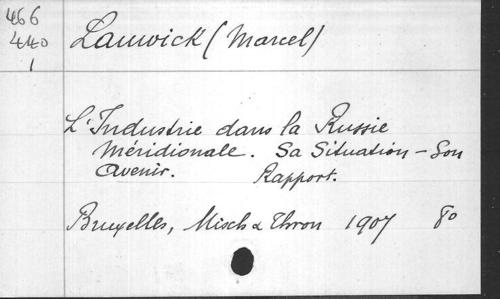 466
440
1
Lauwick (Marcel)
L'Industrie dans la Russie
Méridionale. Sa Situation – Son
Avenir. Rapport.
Bruxelles, Misch & Thron 1907 8o